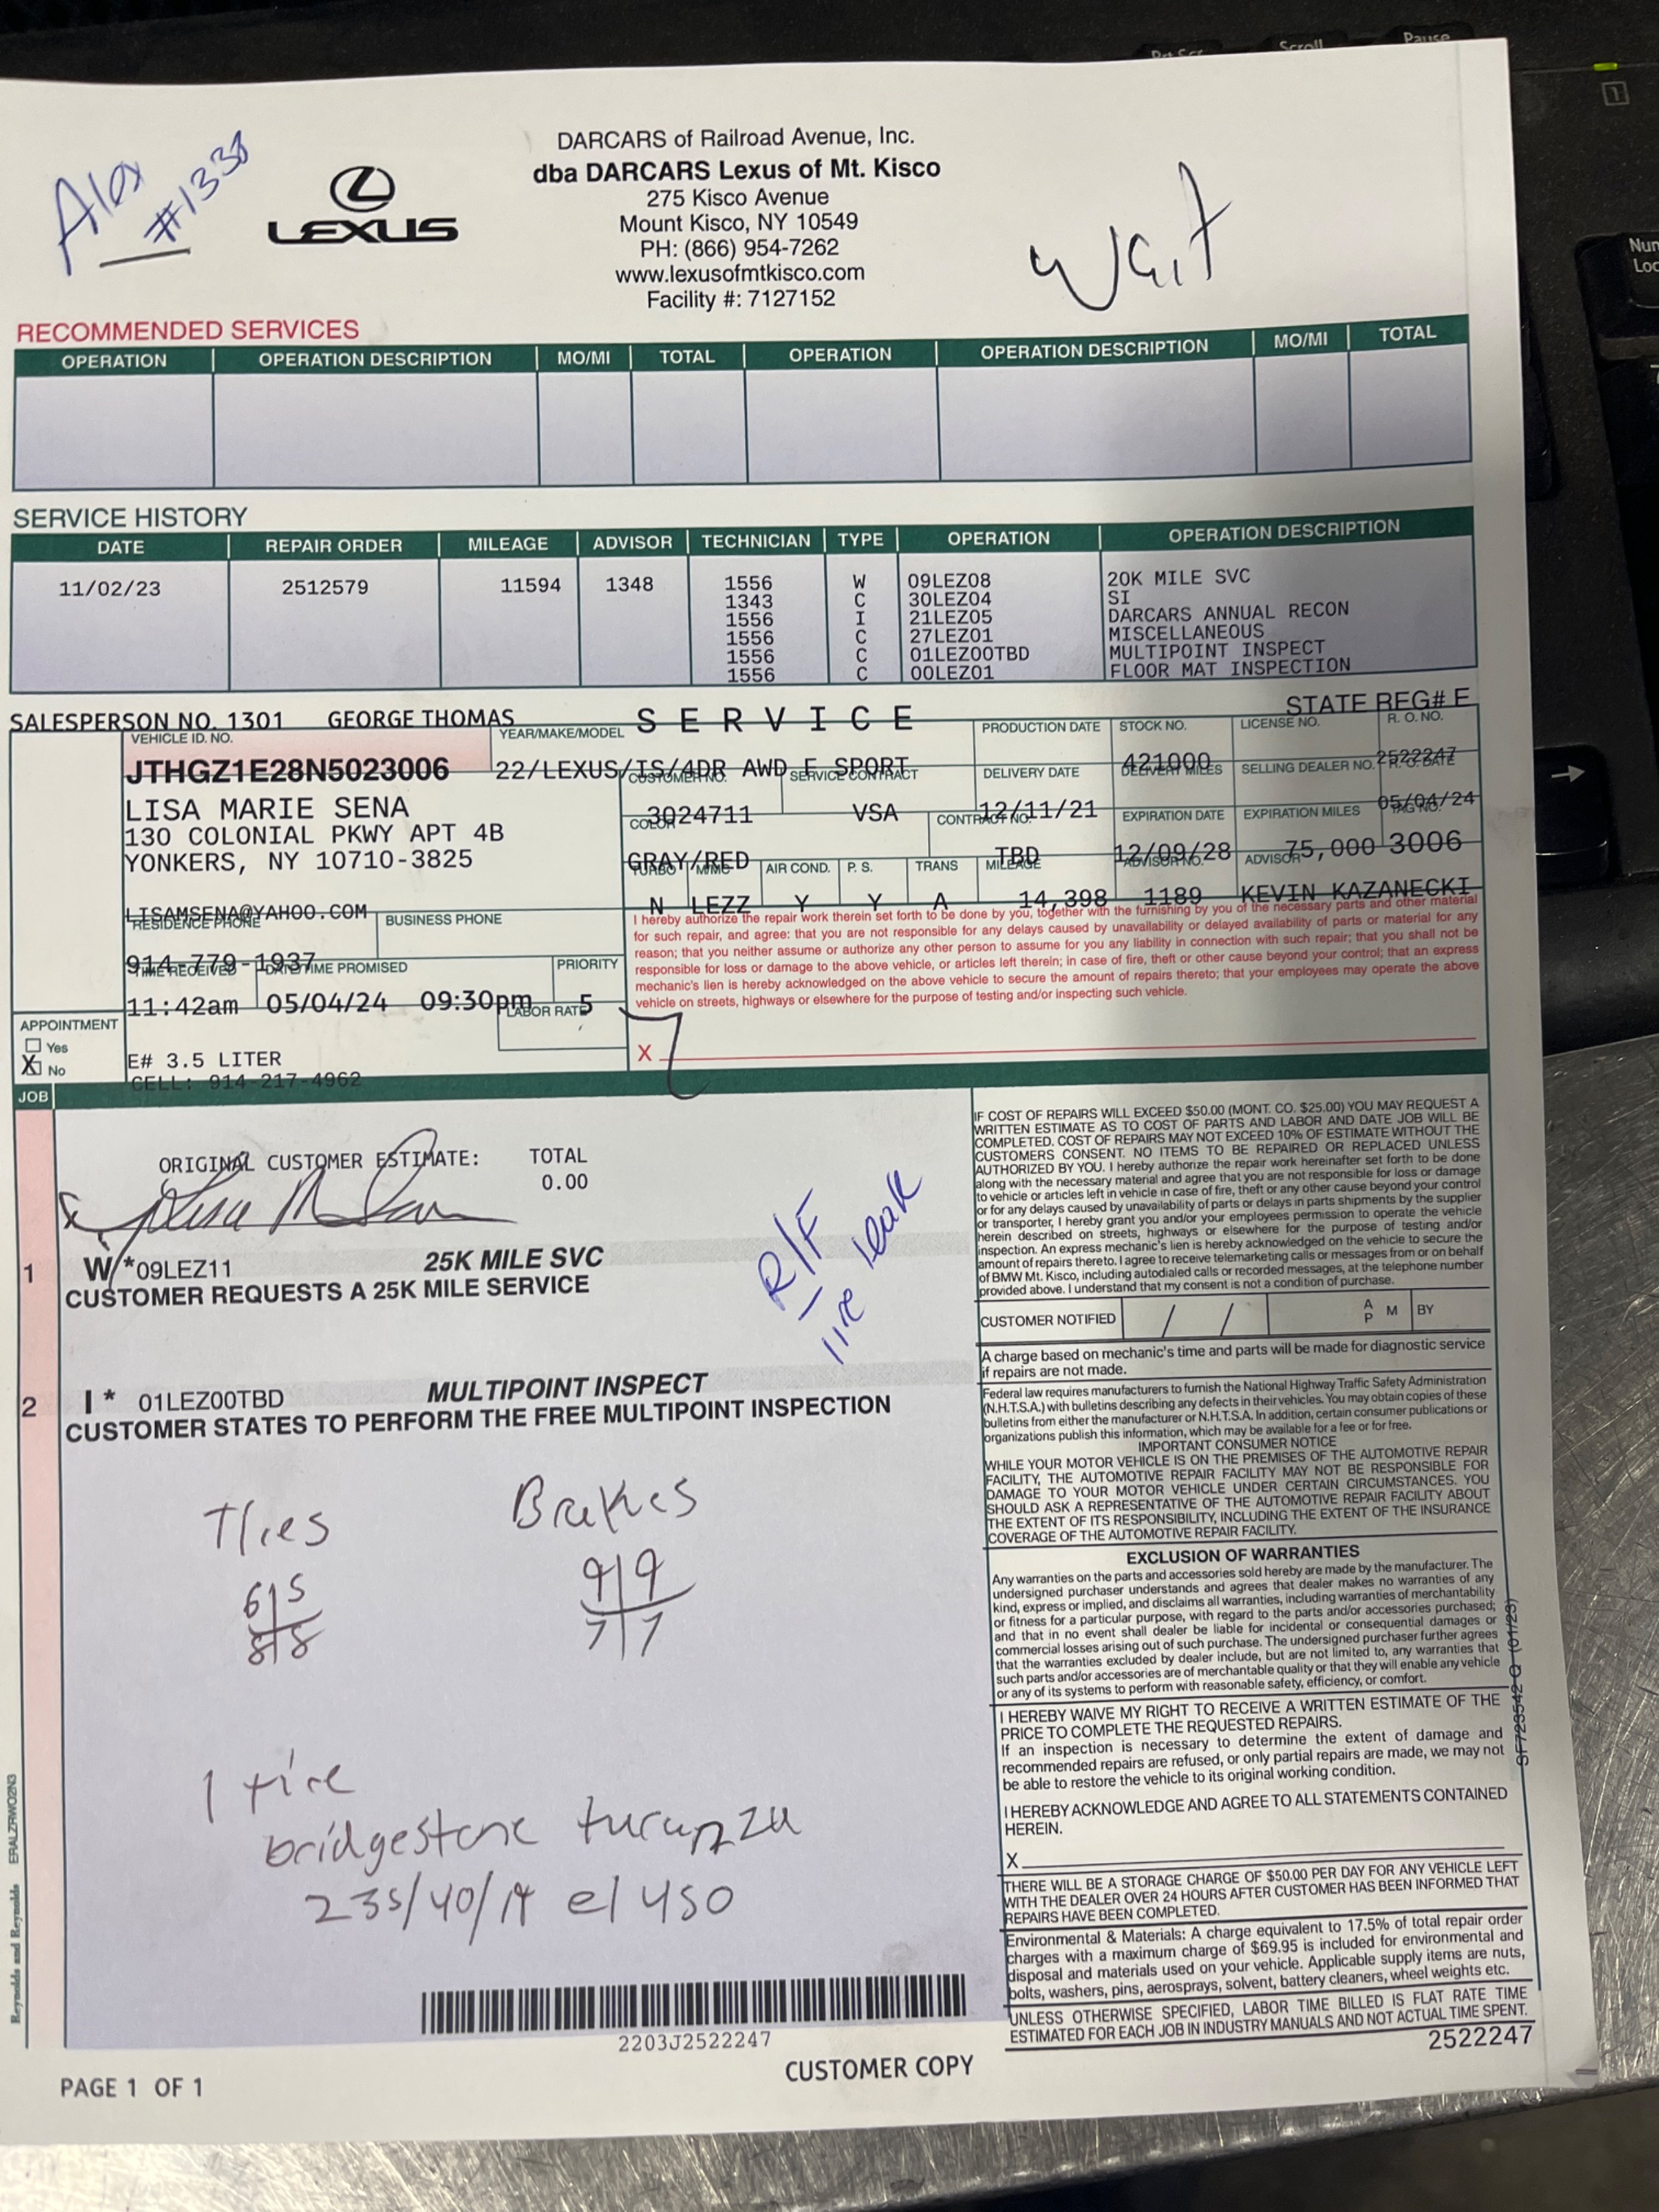 Prt Scr
Scroll
Pause
Num
Loc
1
Alex
#1338
LEXUS
DARCARS of Railroad Avenue, Inc.
dba DARCARS Lexus of Mt. Kisco
275 Kisco Avenue
Mount Kisco, NY 10549
PH: (866) 954-7262
www.lexusofmtkisco.com
Facility #: 7127152
Wait
RECOMMENDED SERVICES
OPERATION OPERATION DESCRIPTION MO/MI TOTAL OPERATION OPERATION DESCRIPTION MO/MI TOTAL
SERVICE HISTORY
DATE REPAIR ORDER MILEAGE ADVISOR TECHNICIAN TYPE OPERATION OPERATION DESCRIPTION
11/02/23 2512579 11594 1348 1556 W 09LEZ08 20K MILE SVC
1343 C 30LEZ04 SI
1556 I 21LEZ05 DARCARS ANNUAL RECON
1556 C 27LEZ01 MISCELLANEOUS
1556 C 01LEZ00TBD MULTIPOINT INSPECT
1556 C 00LEZ01 FLOOR MAT INSPECTION
SALESPERSON NO. 1301 GEORGE THOMAS SERVICE STATE REG# E
VEHICLE ID. NO. YEAR/MAKE/MODEL PRODUCTION DATE STOCK NO. LICENSE NO. R. O. NO.
JTHGZ1E28N5023006 22/LEXUS/IS/4DR AWD F SPORT 421000 2522247
CUSTOMER NO. SERVICE CONTRACT DELIVERY DATE DELIVERY MILES SELLING DEALER NO. R. O. DATE
LISA MARIE SENA 3024711 VSA 12/11/21 05/04/24
130 COLONIAL PKWY APT 4B
COLOR CONTRACT NO. EXPIRATION DATE EXPIRATION MILES TAG NO.
YONKERS, NY 10710-3825 GRAY/RED TBD 12/09/28 75,000 3006
TURBO MMC AIR COND. P. S. TRANS MILEAGE ADVISOR NO. ADVISOR
LISAMSENA@YAHOO.COM N LEZZ Y Y A 14,398 1189 KEVIN KAZANECKI
RESIDENCE PHONE BUSINESS PHONE
914-779-1937
TIME RECEIVED DATE/TIME PROMISED PRIORITY
11:42am 05/04/24 09:30pm 5
LABOR RATE
I hereby authorize the repair work therein set forth to be done by you, together with the furnishing by you of the necessary parts and other material
for such repair, and agree: that you are not responsible for any delays caused by unavailability or delayed availability of parts or material for any
reason; that you neither assume or authorize any other person to assume for you any liability in connection with such repair; that you shall not be
responsible for loss or damage to the above vehicle, or articles left therein; in case of fire, theft or other cause beyond your control; that an express
mechanic's lien is hereby acknowledged on the above vehicle to secure the amount of repairs thereto; that your employees may operate the above
vehicle on streets, highways or elsewhere for the purpose of testing and/or inspecting such vehicle.
X
APPOINTMENT
Yes
X No
E# 3.5 LITER
CELL: 914-217-4962
JOB
ORIGINAL CUSTOMER ESTIMATE: TOTAL
0.00
x Lisa M Sena
1 W/*09LEZ11 25K MILE SVC
CUSTOMER REQUESTS A 25K MILE SERVICE
R/F
tire leak
2 I * 01LEZ00TBD MULTIPOINT INSPECT
CUSTOMER STATES TO PERFORM THE FREE MULTIPOINT INSPECTION
Tires Brakes
6|5 9|9
8|8 7|7
1 tire
bridgestone turanza
235/40/19 el 450
IF COST OF REPAIRS WILL EXCEED $50.00 (MONT. CO. $25.00) YOU MAY REQUEST A
WRITTEN ESTIMATE AS TO COST OF PARTS AND LABOR AND DATE JOB WILL BE
COMPLETED. COST OF REPAIRS MAY NOT EXCEED 10% OF ESTIMATE WITHOUT THE
CUSTOMERS CONSENT. NO ITEMS TO BE REPAIRED OR REPLACED UNLESS
AUTHORIZED BY YOU. I hereby authorize the repair work hereinafter set forth to be done
along with the necessary material and agree that you are not responsible for loss or damage
to vehicle or articles left in vehicle in case of fire, theft or any other cause beyond your control
or for any delays caused by unavailability of parts or delays in parts shipments by the supplier
or transporter, I hereby grant you and/or your employees permission to operate the vehicle
herein described on streets, highways or elsewhere for the purpose of testing and/or
inspection. An express mechanic's lien is hereby acknowledged on the vehicle to secure the
amount of repairs thereto. I agree to receive telemarketing calls or messages from or on behalf
of BMW Mt. Kisco, including autodialed calls or recorded messages, at the telephone number
provided above. I understand that my consent is not a condition of purchase.
CUSTOMER NOTIFIED / / A P M BY
A charge based on mechanic's time and parts will be made for diagnostic service
if repairs are not made.
Federal law requires manufacturers to furnish the National Highway Traffic Safety Administration
(N.H.T.S.A.) with bulletins describing any defects in their vehicles. You may obtain copies of these
bulletins from either the manufacturer or N.H.T.S.A. In addition, certain consumer publications or
organizations publish this information, which may be available for a fee or for free.
IMPORTANT CONSUMER NOTICE
WHILE YOUR MOTOR VEHICLE IS ON THE PREMISES OF THE AUTOMOTIVE REPAIR
FACILITY, THE AUTOMOTIVE REPAIR FACILITY MAY NOT BE RESPONSIBLE FOR
DAMAGE TO YOUR MOTOR VEHICLE UNDER CERTAIN CIRCUMSTANCES. YOU
SHOULD ASK A REPRESENTATIVE OF THE AUTOMOTIVE REPAIR FACILITY ABOUT
THE EXTENT OF ITS RESPONSIBILITY, INCLUDING THE EXTENT OF THE INSURANCE
COVERAGE OF THE AUTOMOTIVE REPAIR FACILITY.
EXCLUSION OF WARRANTIES
Any warranties on the parts and accessories sold hereby are made by the manufacturer. The
undersigned purchaser understands and agrees that dealer makes no warranties of any
kind, express or implied, and disclaims all warranties, including warranties of merchantability
or fitness for a particular purpose, with regard to the parts and/or accessories purchased;
and that in no event shall dealer be liable for incidental or consequential damages or
commercial losses arising out of such purchase. The undersigned purchaser further agrees
that the warranties excluded by dealer include, but are not limited to, any warranties that
such parts and/or accessories are of merchantable quality or that they will enable any vehicle
or any of its systems to perform with reasonable safety, efficiency, or comfort.
I HEREBY WAIVE MY RIGHT TO RECEIVE A WRITTEN ESTIMATE OF THE
PRICE TO COMPLETE THE REQUESTED REPAIRS.
If an inspection is necessary to determine the extent of damage and
recommended repairs are refused, or only partial repairs are made, we may not
be able to restore the vehicle to its original working condition.
I HEREBY ACKNOWLEDGE AND AGREE TO ALL STATEMENTS CONTAINED
HEREIN.
X
THERE WILL BE A STORAGE CHARGE OF $50.00 PER DAY FOR ANY VEHICLE LEFT
WITH THE DEALER OVER 24 HOURS AFTER CUSTOMER HAS BEEN INFORMED THAT
REPAIRS HAVE BEEN COMPLETED.
Environmental & Materials: A charge equivalent to 17.5% of total repair order
charges with a maximum charge of $69.95 is included for environmental and
disposal and materials used on your vehicle. Applicable supply items are nuts,
bolts, washers, pins, aerosprays, solvent, battery cleaners, wheel weights etc.
UNLESS OTHERWISE SPECIFIED, LABOR TIME BILLED IS FLAT RATE TIME
ESTIMATED FOR EACH JOB IN INDUSTRY MANUALS AND NOT ACTUAL TIME SPENT.
2522247
SF723542 Q (01/23)
Reynolds and Reynolds ERALZRWO2N3
2203J2522247
CUSTOMER COPY
PAGE 1 OF 1